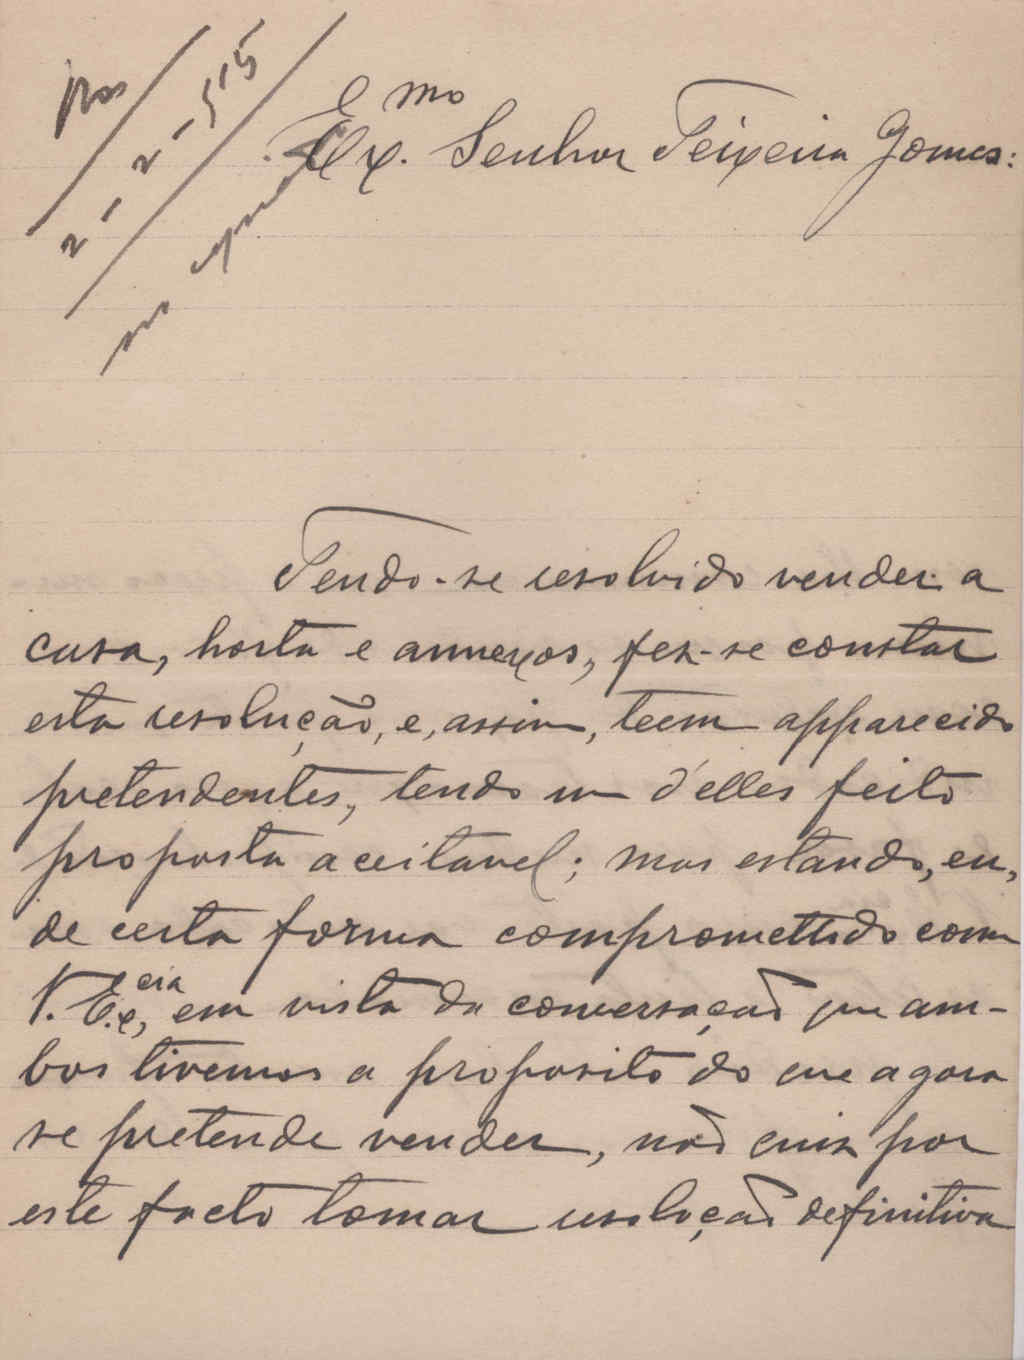 2-2-515
Ex.mo Senhor Teixeira Gomes:
Tendo-se resolvido vender a
casa, horta e annexos, fez-se constar
esta resolução, e, assim, teem apparecido
pretendentes, tendo um d'elles feito
proposta aceitavel; mas estando, eu,
de certa forma compromettido com
V. Ex.cia, em vista da conversação que am-
bos tivemos a proposito do que agora
se pretende vender, não quiz por
este facto tomar resolução definitiva